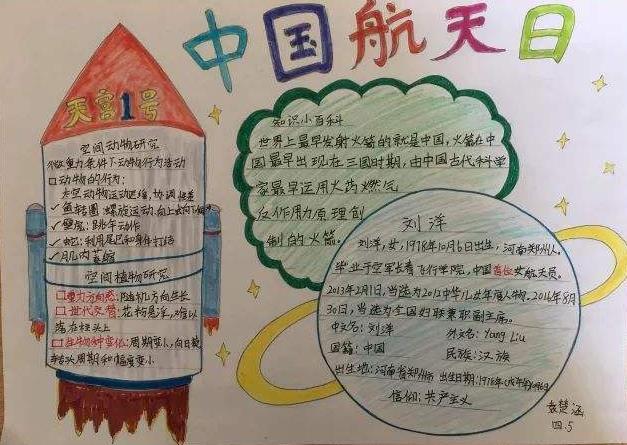 中国航天日
天宫1号
空间动物研究
微重力条件下动物行为活动
□动物的行为:
太空动物运动迟缓,协调性差
✓鱼转圈:螺旋运动,向上或向下
✓壁虎:跳跃动作
✓蛇:利用尾巴和身体打结
✓肌肉萎缩
空间植物研究
□重力方向感:随机方向生长
□世代交替:花粉悬浮,难以
落在柱头上
□生物钟变化:周期变小,向日葵
转头周期和幅度变小
知识小百科
世界上最早发射火箭的就是中国,火箭在中
国最早出现在三国时期,由中国古代科学
家最早运用火药燃气
反作用力原理创
制的火箭。
刘洋
刘洋,女,1978年10月6日出生,河南郑州人。
毕业于空军长春飞行学院,中国首位女航天员。
2013年2月1日,当选为2012中华儿女年度人物。2016年8月
30日,当选为全国妇联兼职副主席。
中文名:刘洋
外文名:Yang Liu
国籍:中国
民族:汉族
出生地:河南省郑州市
出生日期:1978年(戊午年)10月6日
信仰:共产主义
四.5